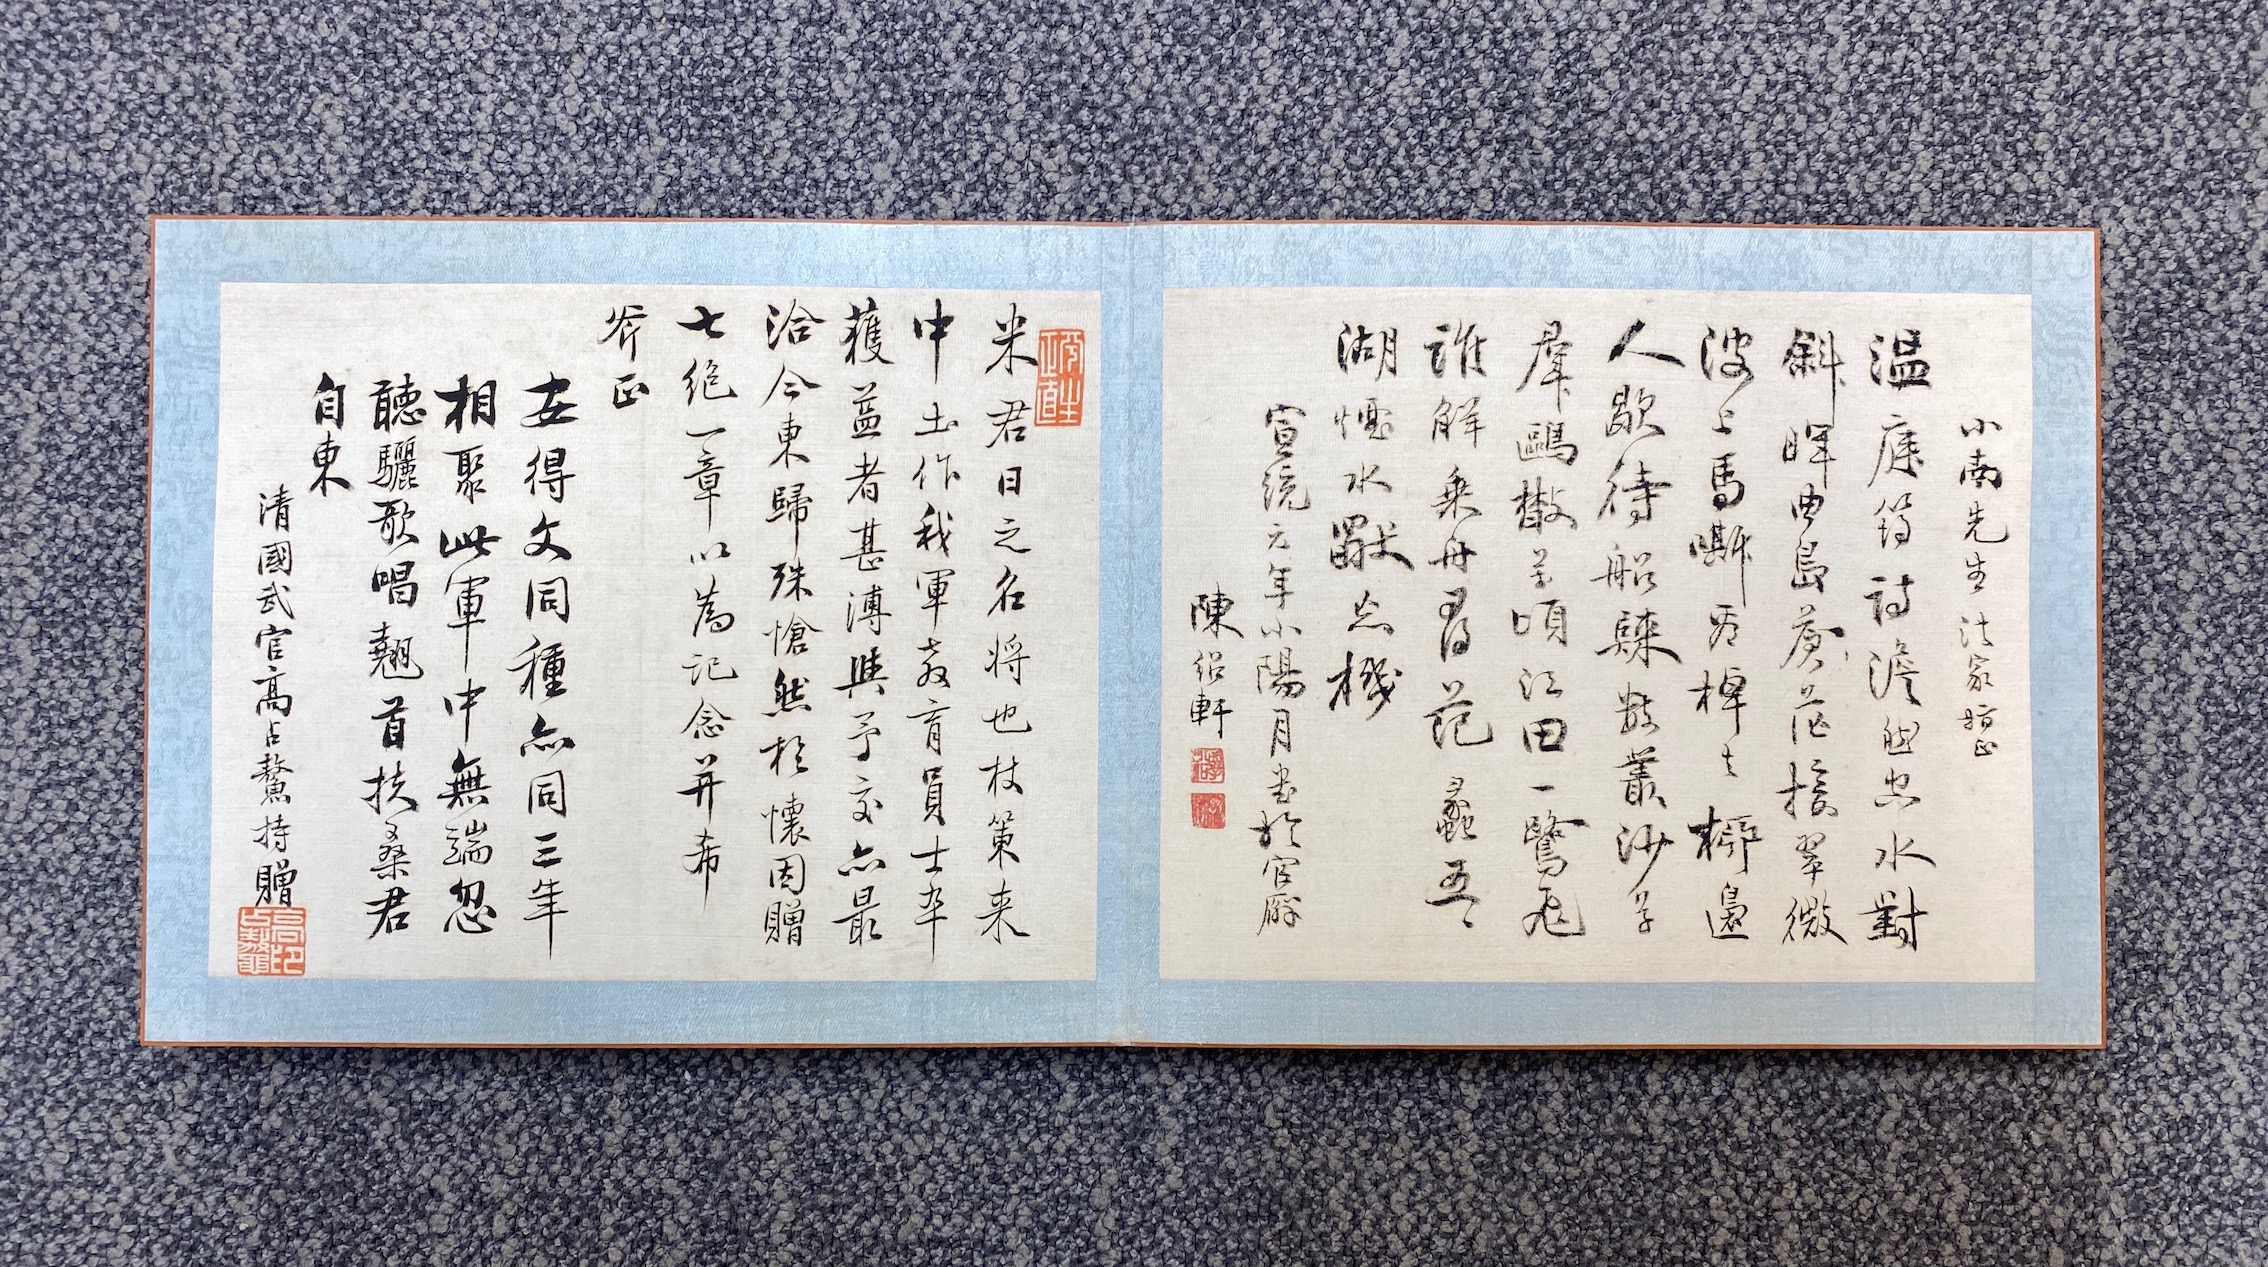 小南先生法家好正
温庭筠詩澹然空水對
斜暉曲島蒼茫接翠微
波上馬嘶看棹去柳邊
人歇待船歸數叢沙草
羣鷗散萬頃江田一鷺飛
誰解乗舟尋范蠡五
湖烟水獨忘機
宣統元年小陽月書於官廨
陳紹軒
米君日之名将也杖策来
中土作我軍敎育員士卒
獲益者甚溥與予交亦最
洽今東歸殊愴然於懷因贈
七絶一章以為記念并希
斧正
安得文同種亦同三年
相聚此軍中無端忽
聽驪歌唱翹首扶桑君
自東
清國武官高占鰲持贈